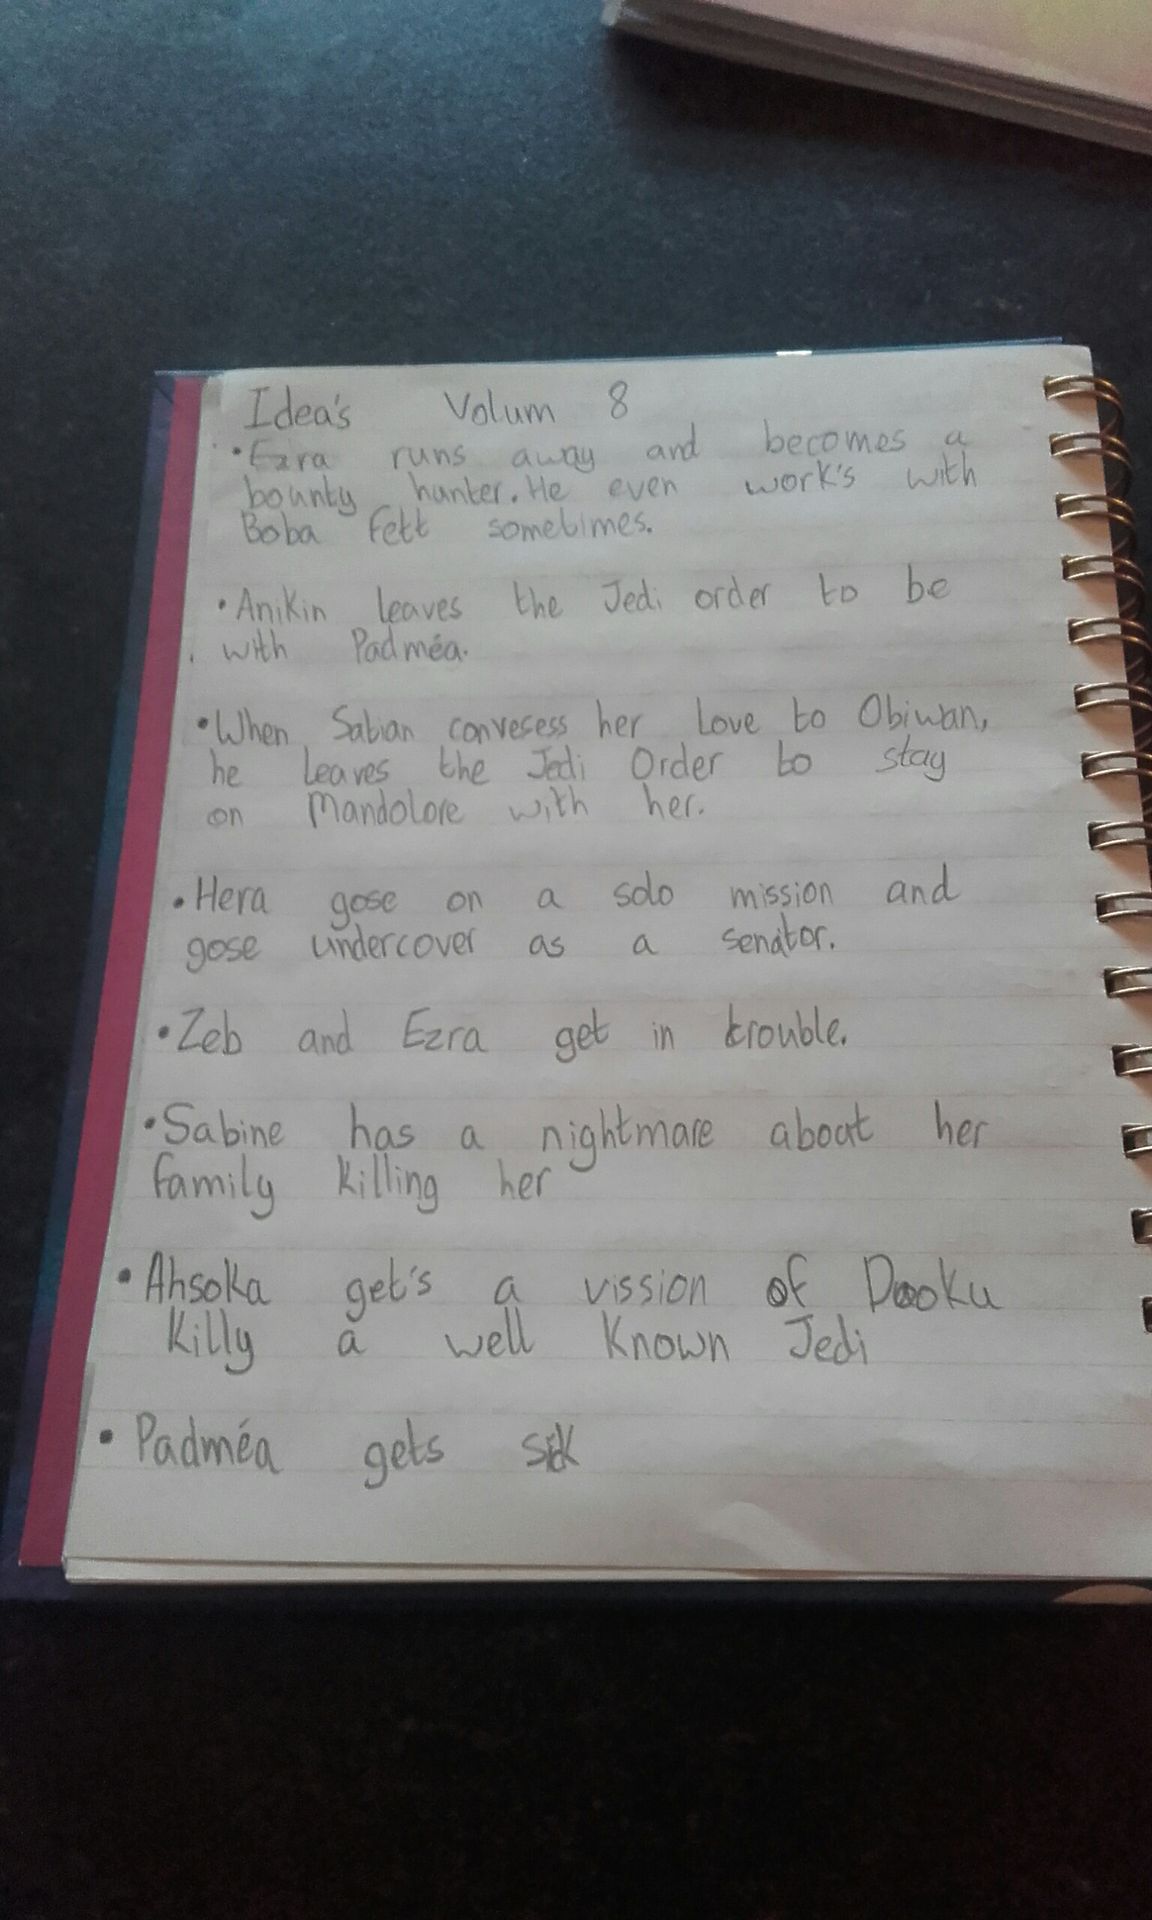 Idea's Volum 8
• Ezra runs away and becomes a
bounty hunter. He even work's with
Boba Fett sometimes.
• Anikin leaves the Jedi order to be
with Padméa.
• When Satian convesess her Love to Obiwan,
he leaves the Jedi Order to stay
on Mandolore with her.
• Hera gose on a solo mission and
gose undercover as a senator.
• Zeb and Ezra get in trouble.
• Sabine has a nightmare about her
family killing her
• Ahsoka get's a vission of Dooku
Killy a well Known Jedi
• Padméa gets sick